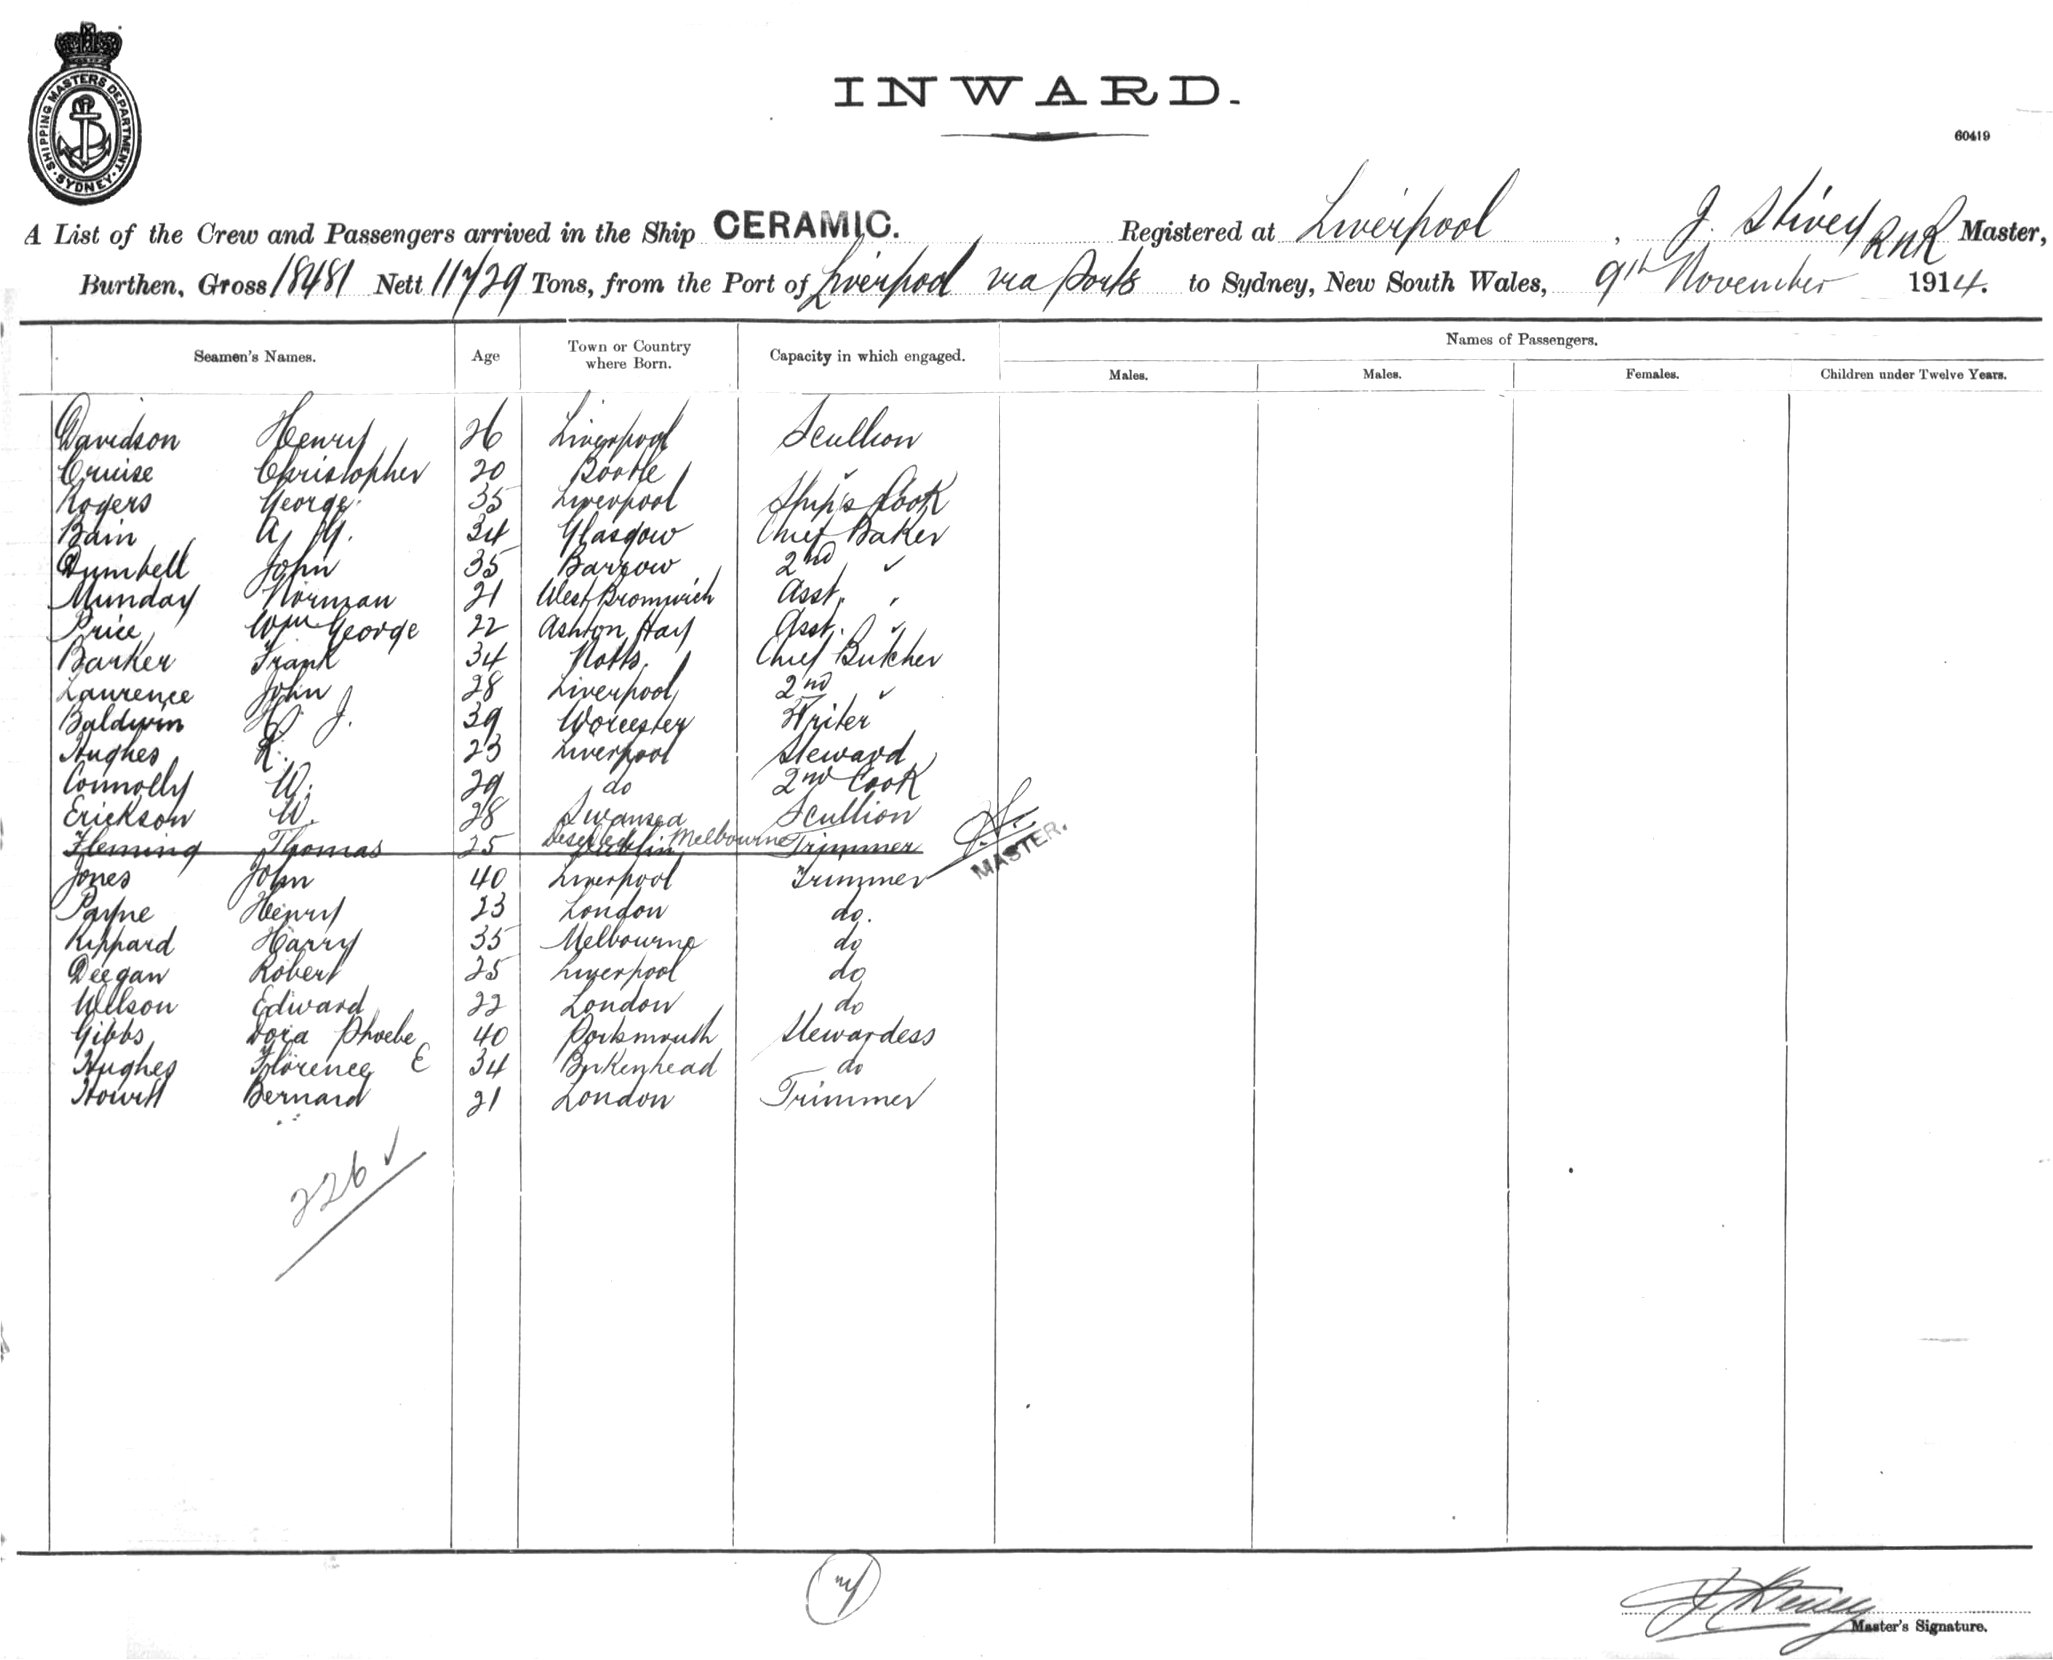 SHIPPING MASTERS DEPARTMENT. SYDNEY.
INWARD.
60419
A List of the Crew and Passengers arrived in the Ship CERAMIC. Registered at Liverpool, J. Stivey RNR Master,
Burthen, Gross 18481 Nett 11729 Tons, from the Port of Liverpool via Ports to Sydney, New South Wales, 9th November 1914.
Names of Passengers.
Seamen's Names. Age Town or Country where Born. Capacity in which engaged. Males. Males. Females. Children under Twelve Years.
Davidson Henry 26 Liverpool Scullion
Cruise Christopher 20 Bootle "
Rogers George 35 Liverpool Ship's Cook
Bain A. 34 Glasgow Chief Baker
Dumbell John 35 Barrow 2nd "
Munday Norman 21 West Bromwich Asst. "
Price Wm George 22 Ashton Hay Asst. "
Barker Frank 34 Notts. Chief Butcher
Laurence John 28 Liverpool 2nd "
Baldwin H. J. 39 Worcester Writer
Hughes R. 23 Liverpool Steward
Connolly W. 29 do 2nd Cook
Erickson W. 28 Swansea Scullion
Deserted Melbourne J.S.
Fleming Thomas 25 Dublin Trimmer MASTER.
Jones John 40 Liverpool Trimmer
Payne Henry 23 London do.
Rippard Harry 35 Melbourne do
Deegan Robert 25 Liverpool do
Wilson Edward 22 London do
Gibbs Dora Phoebe 40 Portsmouth Stewardess
Hughes Florence E 34 Birkenhead do
Howitt Bernard 21 London Trimmer
226 ✓
J Stivey
Master's Signature.